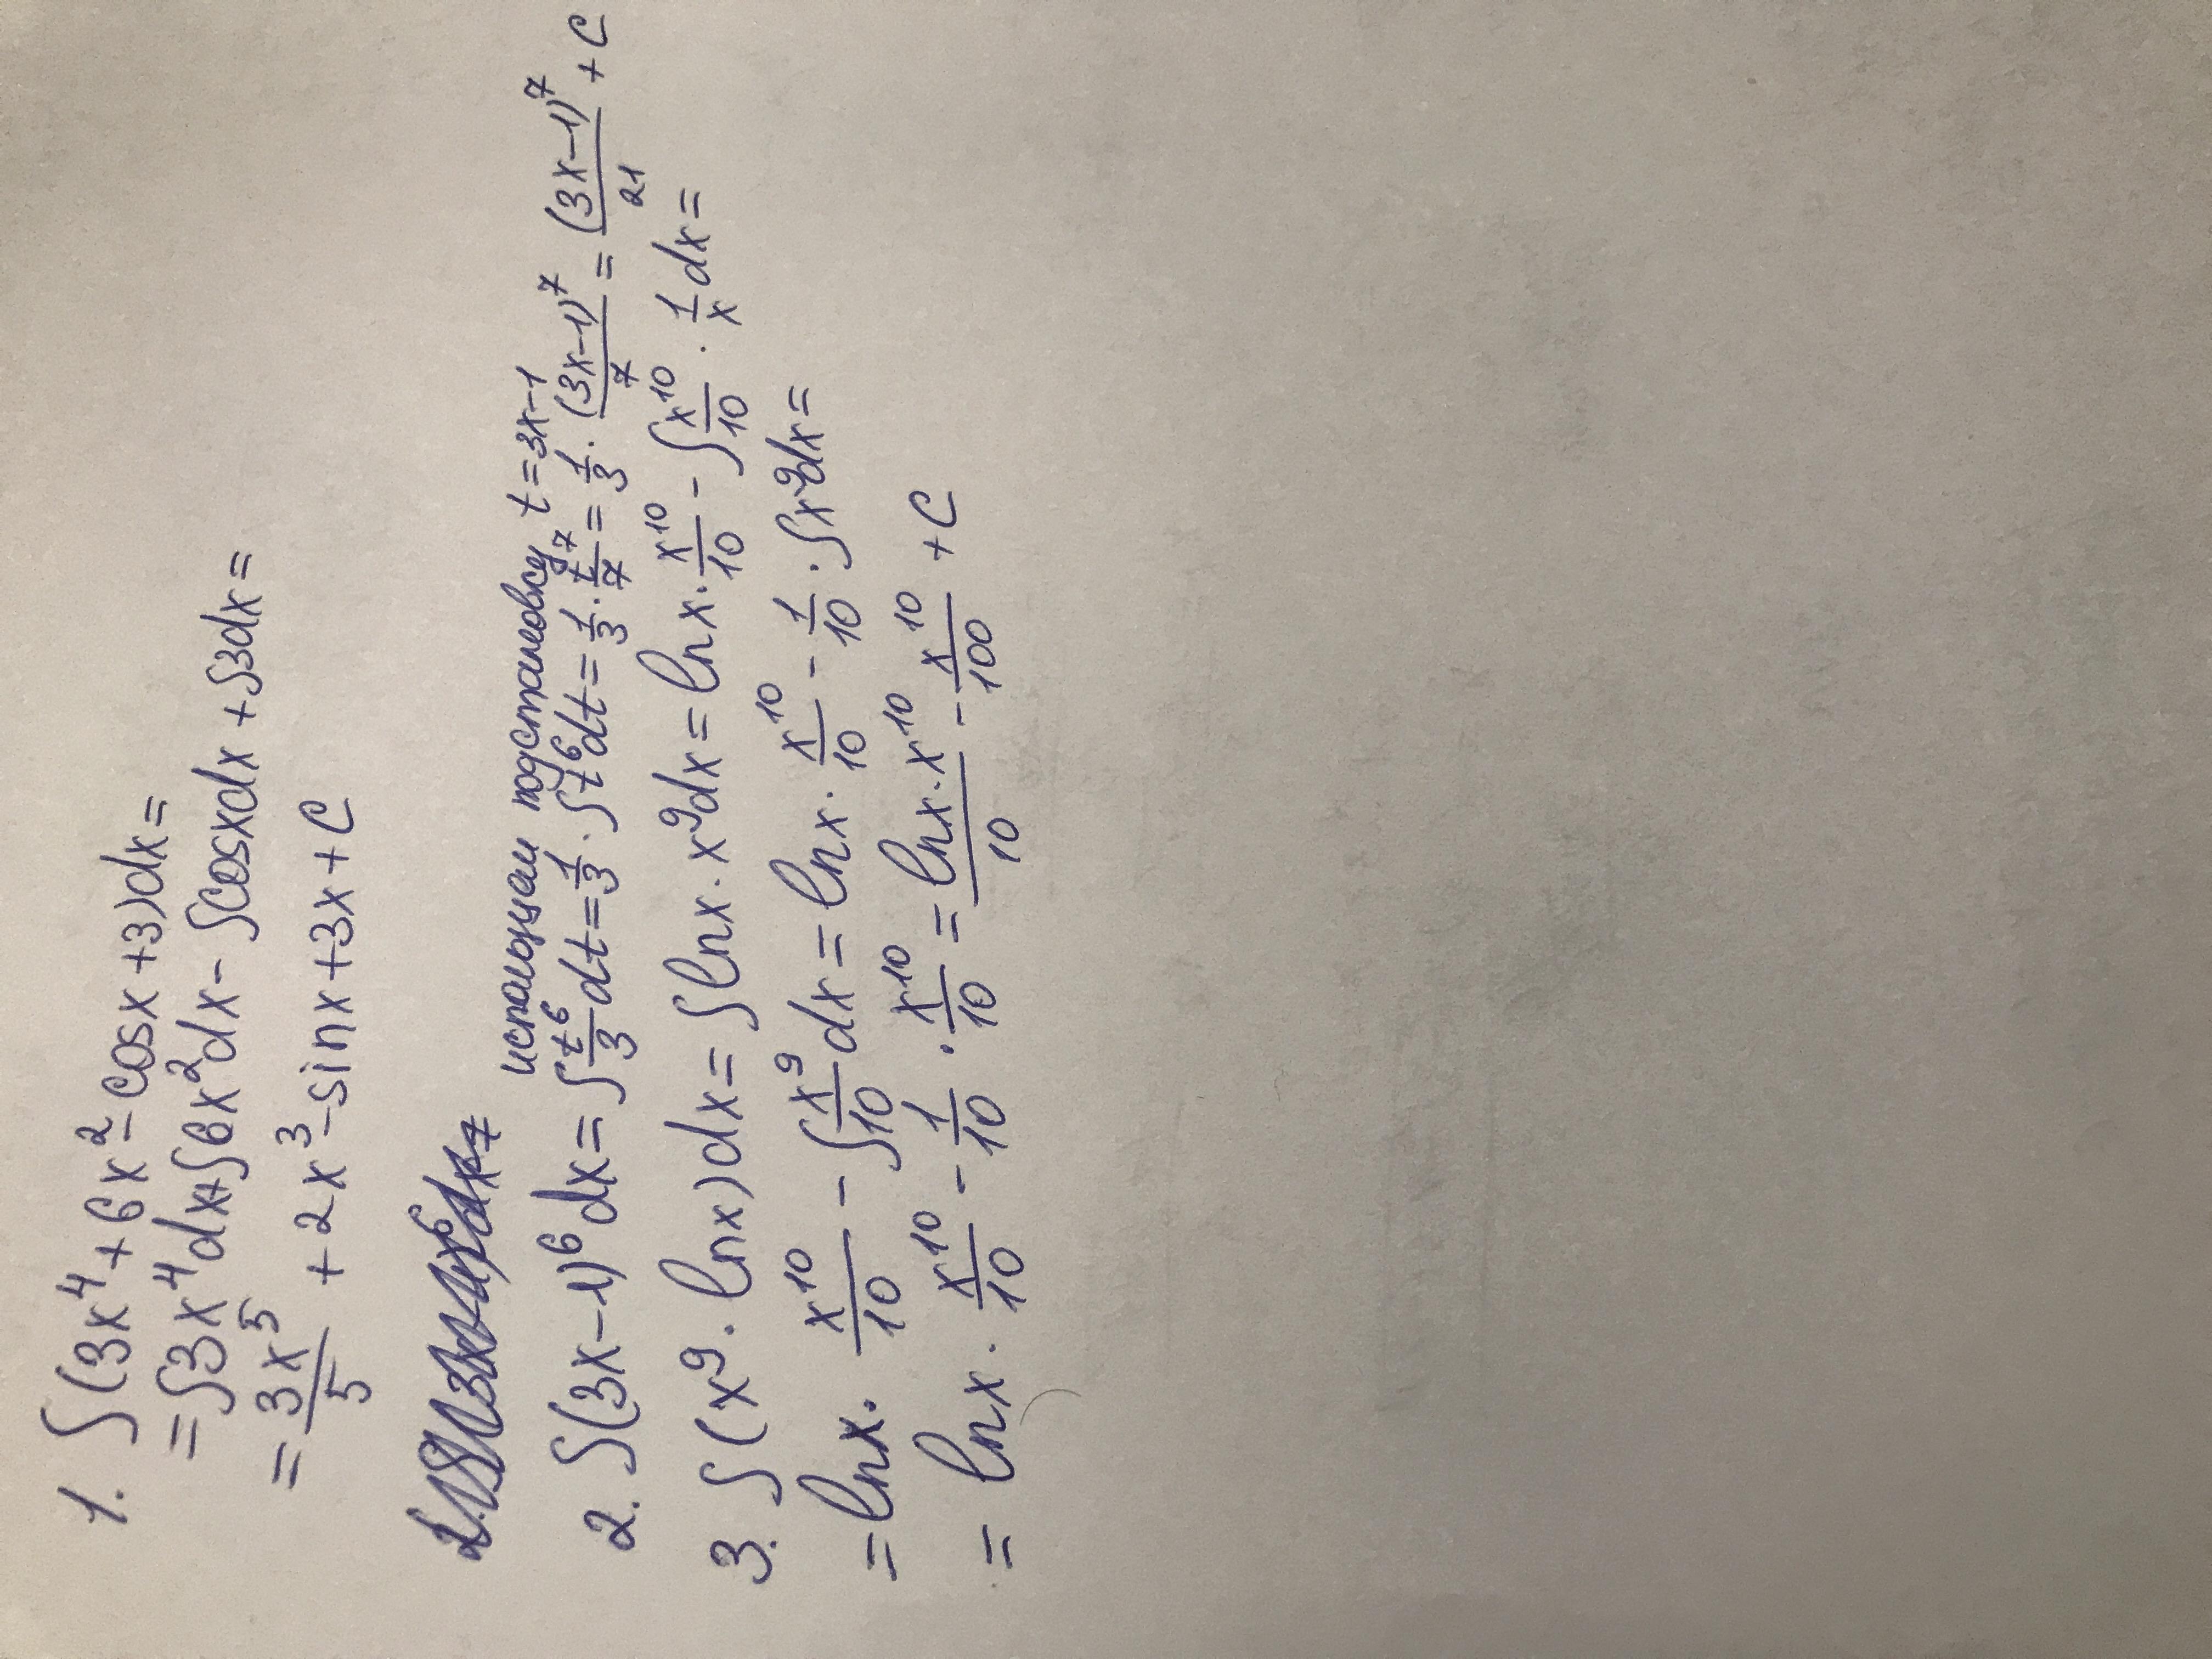 1. ∫(3x⁴+6x²-cosx+3)dx=
=∫3x⁴dx+∫6x²dx-∫cosxdx+∫3dx=
=3x⁵/5+2x³-sinx+3x+C
используем подстановку t=3x-1
2. ∫(3x-1)⁶dx=∫t⁶/3dt=1/3·∫t⁶dt=1/3·t⁷/7=1/3·(3x-1)⁷/7=(3x-1)⁷/21+C
3. ∫(x⁹·lnx)dx=∫lnx·x⁹dx=lnx·x¹⁰/10-∫x¹⁰/10·1/x dx=
=lnx·x¹⁰/10-∫x⁹/10dx=lnx·x¹⁰/10-1/10·∫x⁹dx=
=lnx·x¹⁰/10-1/10·x¹⁰/10=lnx·x¹⁰/10-x¹⁰/100+C